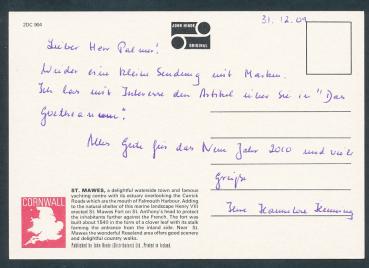 2DC 964
JOHN HINDE
ORIGINAL
31.12.09
Lieber Herr Palmer!
Wieder eine kleine Sendung mit Marken.
Ich las mit Interesse den Artikel über Sie in "Das
Goetheanum".
Alles Gute für das Neue Jahr 2010 und viele
Grüße
Ihre Hannelore
CORNWALL
ST. MAWES, a delightful waterside town and famous
yachting centre with its estuary overlooking the Carrick
Roads which are the mouth of Falmouth Harbour. Adding
to the natural shelter of this marine landscape Henry VIII
erected St. Mawes Fort on St. Anthony's head to protect
the inhabitants further against the French. The fort was
built about 1540 in the form of a clover leaf with its stalk
forming the entrance from the inland side. Near St.
Mawes the wonderful Roseland area offers good scenery
and delightful country walks.
Published by John Hinde (Distributors) Ltd., Printed in Ireland.